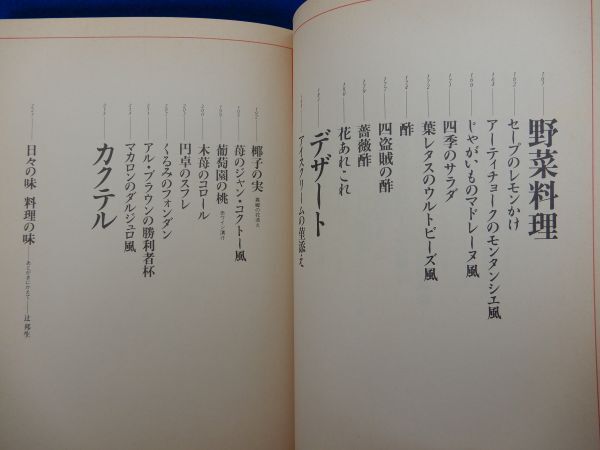 野菜料理
セープのレモンかけ
アーティチョークのモンタンシエ風
じゃがいものマドレーヌ風
四季のサラダ
葉レタスのウルトビーズ風
酢
四盗賊の酢
薔薇酢
花あれこれ
デザート
アイスクリームの菫添え
椰子の実
苺のジャン・コクトー風
葡萄園の桃 赤ワイン漬け
木苺のコロール
円卓のスフレ
くるみのフォンダン
アル・ブラウンの勝利者杯
マカロンのダルジュロ風
カクテル
日々の味 料理の味 あとがきにかえて 辻邦生